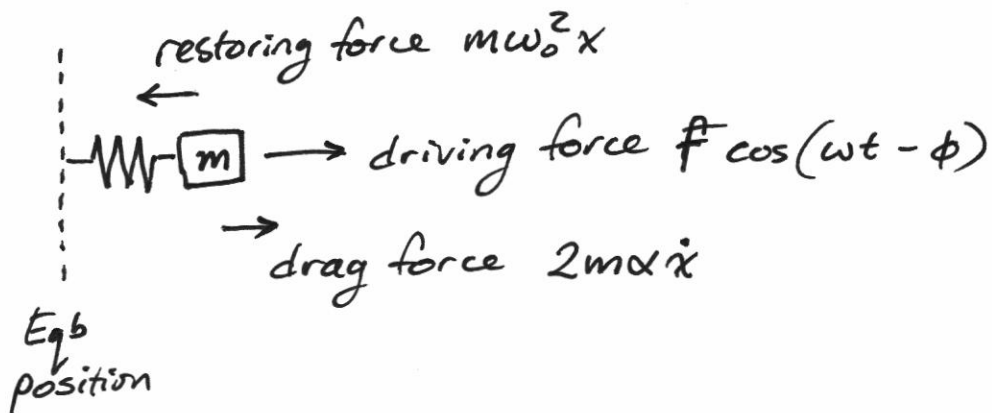 restoring force mω₀²x
m
driving force F cos(ωt - ϕ)
drag force 2mαẋ
Eqb
position